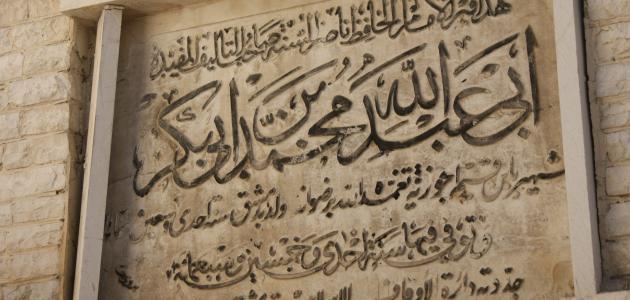 هذا قبر الامام الحافظ ناصر السنة صاحب التآليف المفيدة
ابي عبد الله محمد بن ابي بكر
شهير بابن قيم الجوزية تغمده الله برضوانه ولد بدمشق سنة احدى وتسعين
وتوفي فيها سنة احدى وخمسين وسبعمائة
جددته دائرة الاوقاف